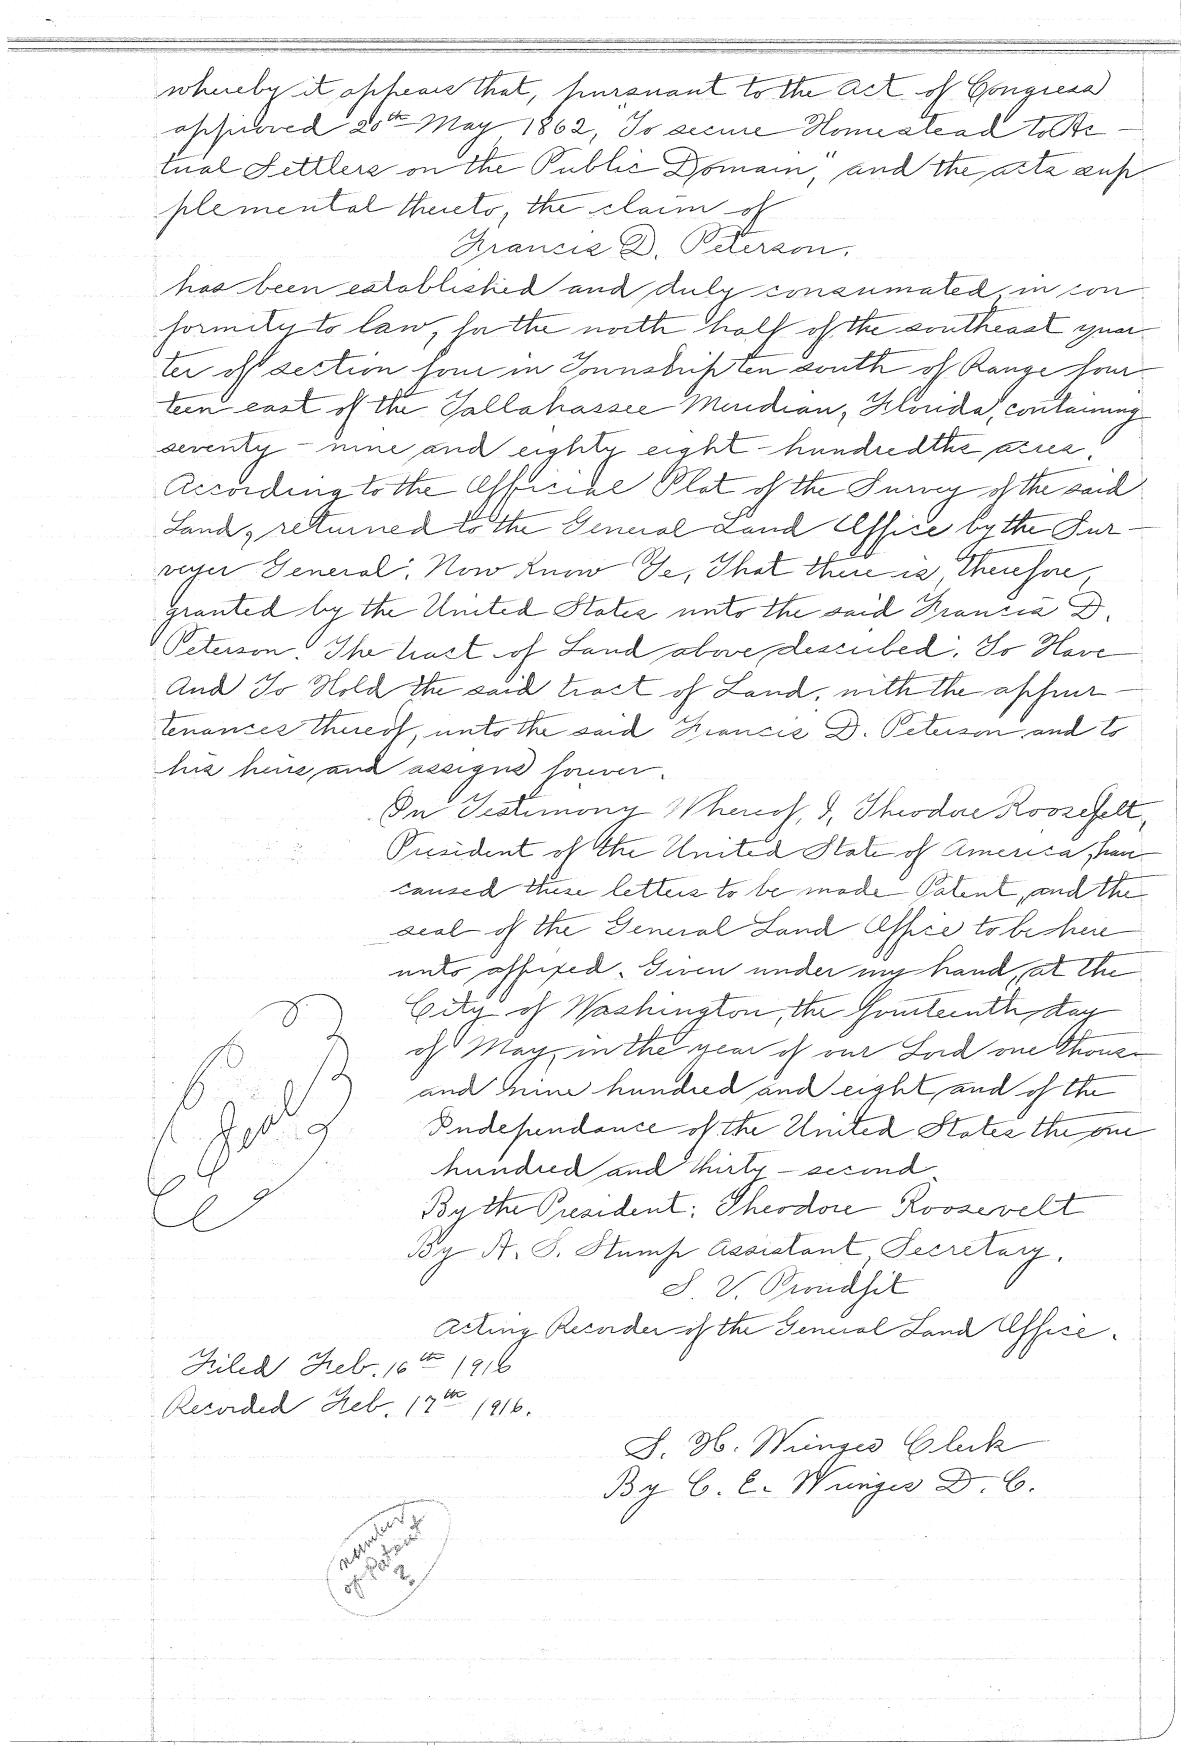 whereby it appears that, pursuant to the Act of Congress
approved 20th May 1862, "To secure Homestead to Ac-
tual Settlers on the Public Domain," and the acts sup
plemental thereto, the claim of
Francis D. Peterson.
has been established and duly consumated, in con
formity to law, for the north half of the southeast quar
ter of section four in Township ten south of Range four
teen east of the Tallahassee Meridian, Florida, containing
seventy-nine and eighty eight-hundredths acres.
According to the Official Plat of the Survey of the said
Land, returned to the General Land Office by the Sur-
veyer General: Now Know Ye, That there is, therefore,
granted by the United States unto the said Francis D.
Peterson. The tract of Land above described. To Have
And To Hold the said tract of Land, with the appur-
tenances thereof, unto the said Francis D. Peterson and to
his heirs and assigns forever.
In Testimony Whereof, I, Theodore Roosefelt,
President of the United State of America, have
caused these letters to be made Patent, and the
seal of the General Land Office to be here
unto affixed. Given under my hand, at the
City of Washington, the fourteenth day
of May, in the year of our Lord one thous-
and nine hundred and eight, and of the
Independance of the United States the one
hundred and thirty-second.
Seal
By the President: Theodore Roosevelt
By A. S. Stump Assistant Secretary.
S. V. Proudfit
Acting Recorder of the General Land Office.
Filed Feb. 16th 1916
Recorded Feb. 17th 1916.
S. H. Clerk
By C. E. D. C.
number
of Patent
2.